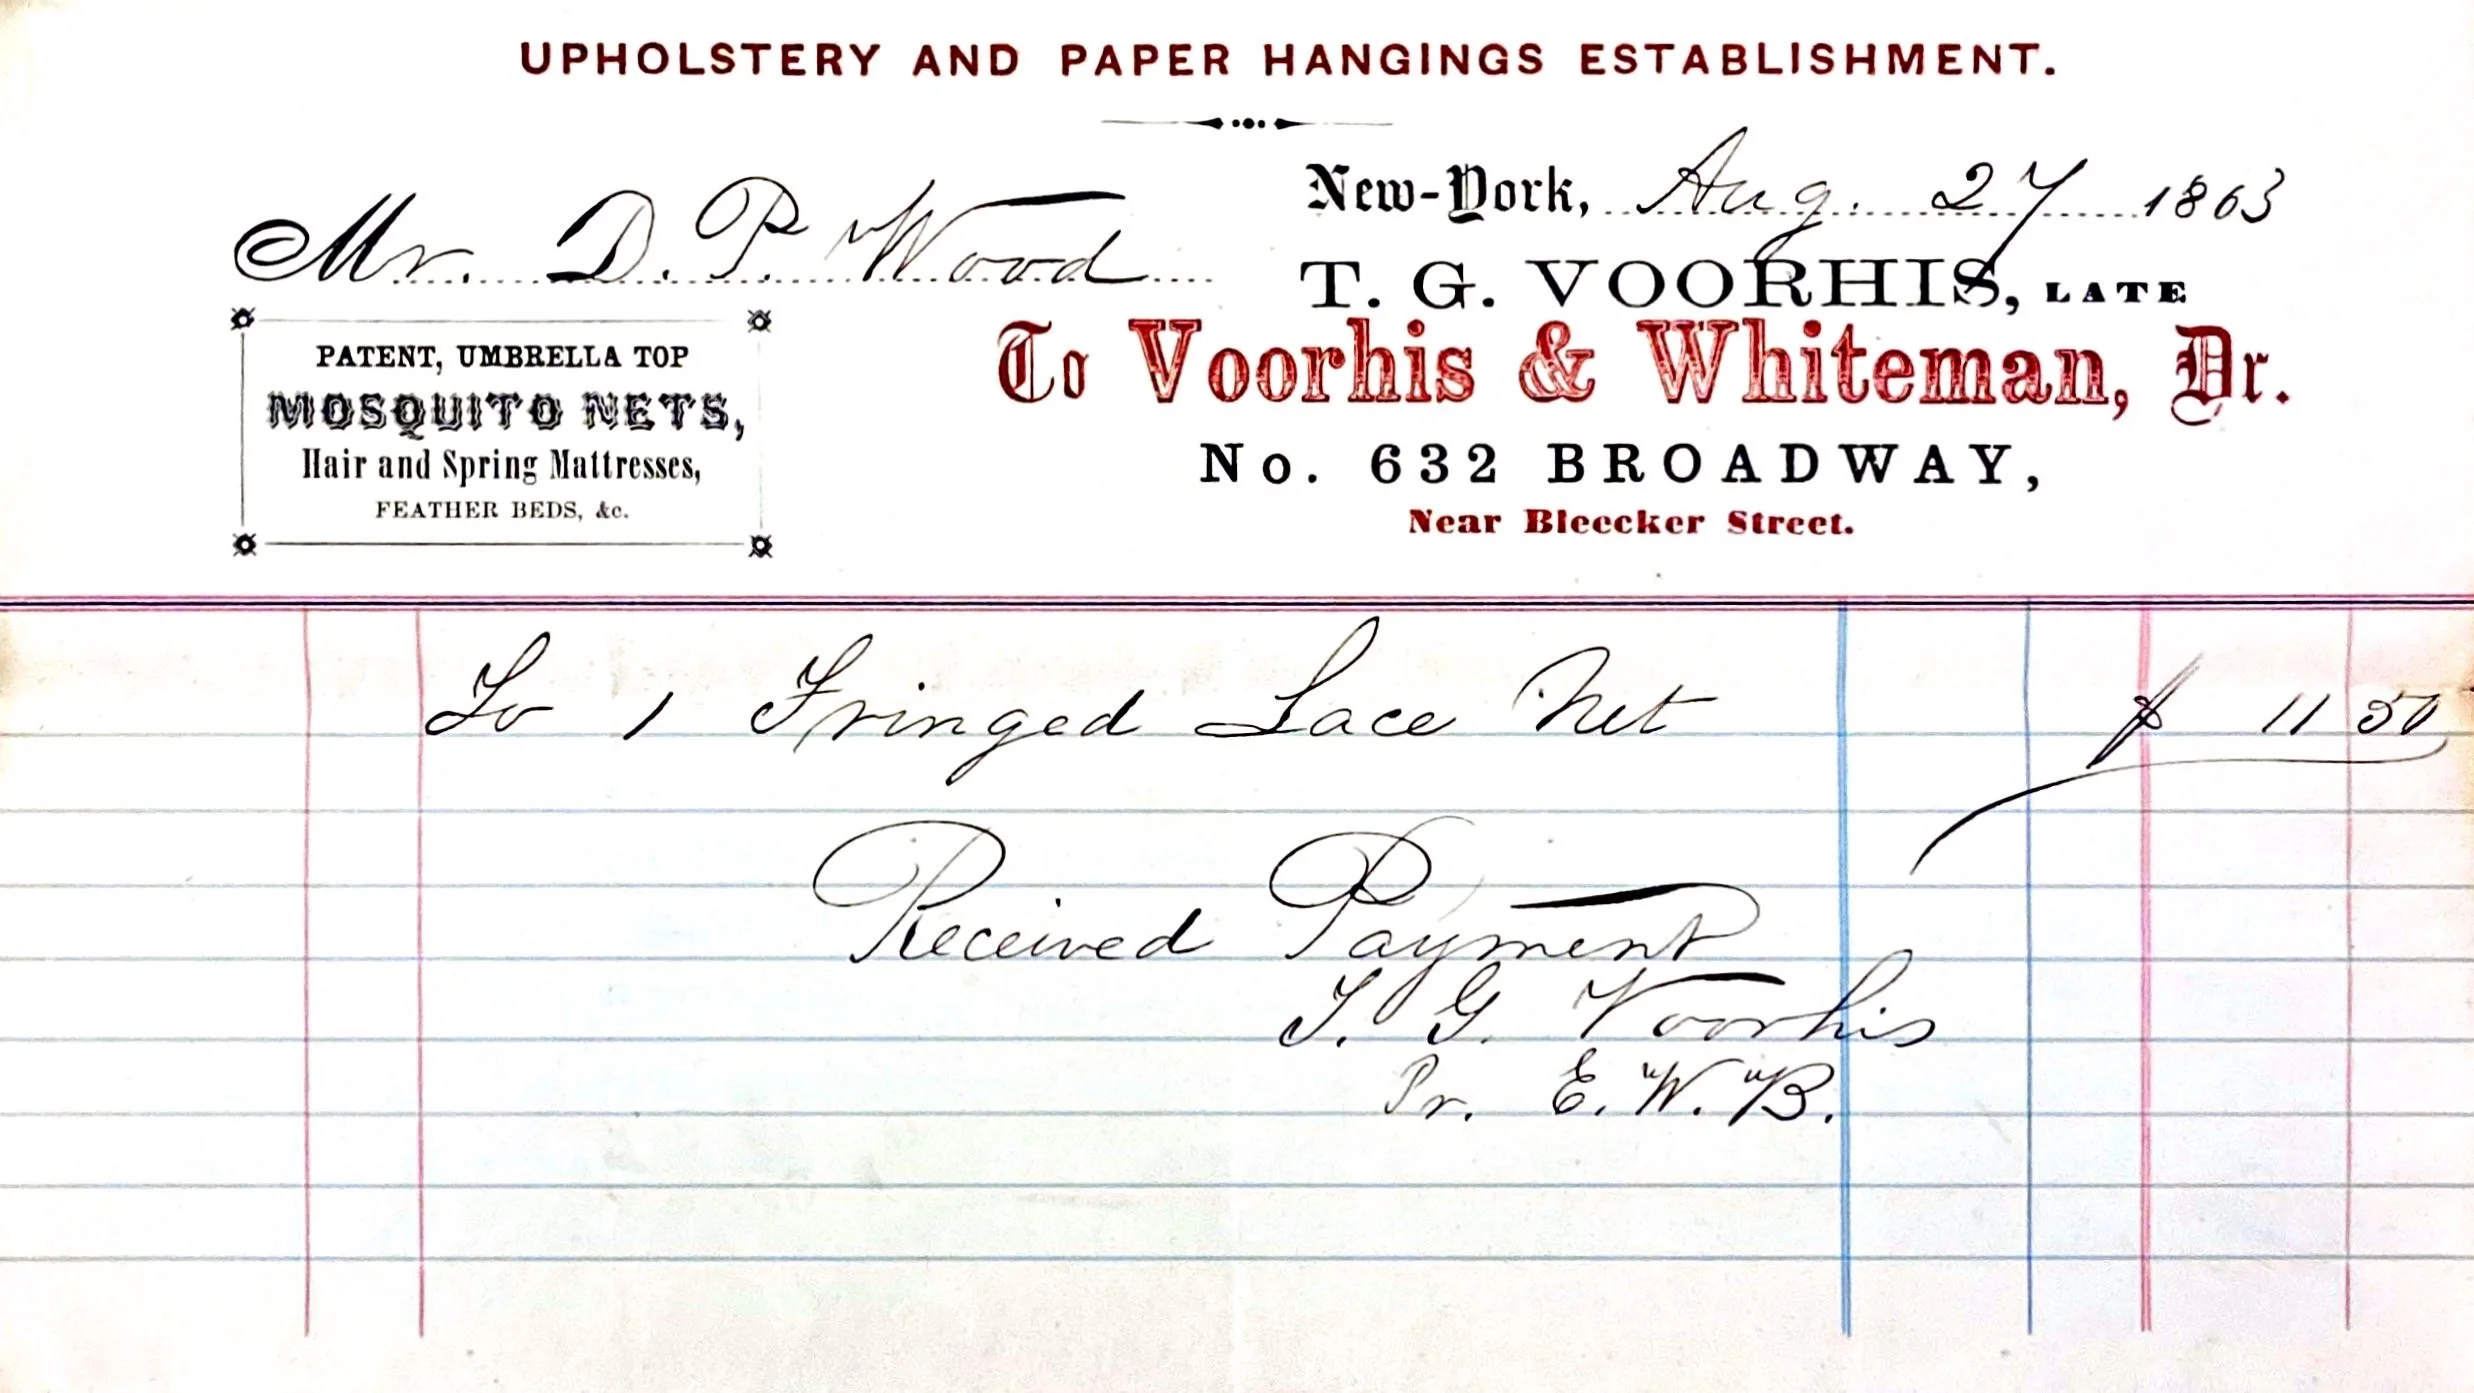 UPHOLSTERY AND PAPER HANGINGS ESTABLISHMENT.
New-York, Aug. 27 1863
Mr. D. P. Wood
T. G. VOORHIS, LATE
To Voorhis & Whiteman, Dr.
No. 632 BROADWAY,
Near Bleecker Street.
PATENT, UMBRELLA TOP
MOSQUITO NETS,
Hair and Spring Mattresses,
FEATHER BEDS, &c.
To 1 Fringed Lace Net $ 11 50
Received Payment
T. G. Voorhis
Pr. E. W. B.